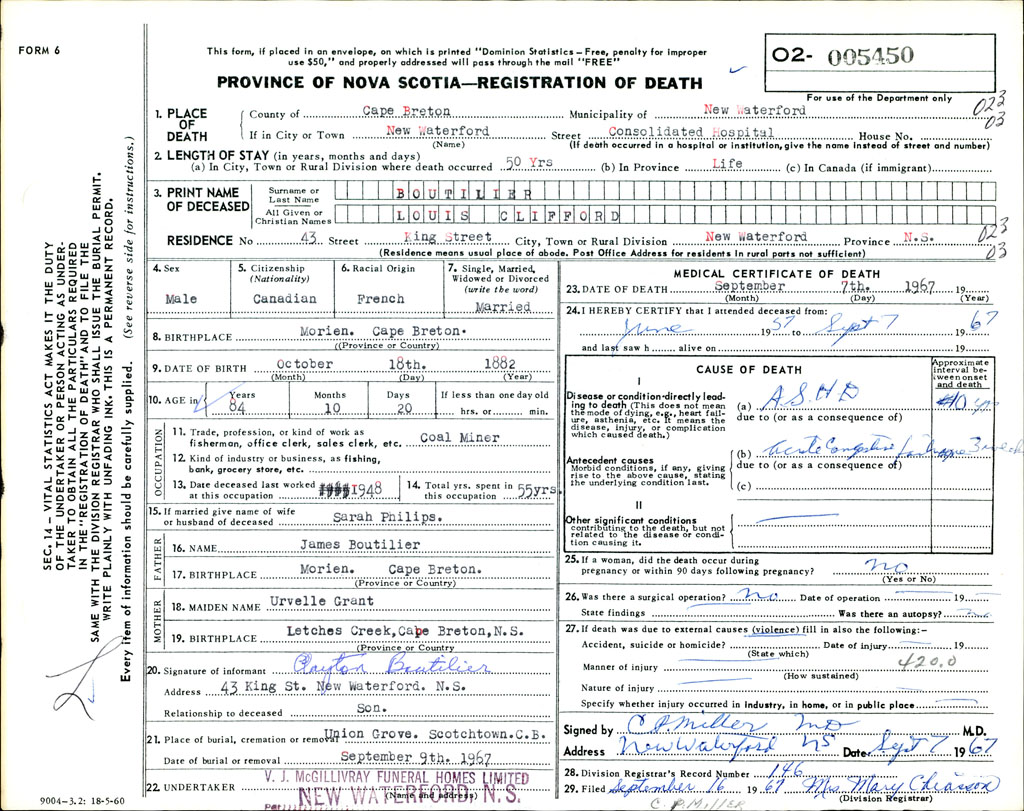 FORM 6
This form, if placed in an envelope, on which is printed "Dominion Statistics – Free, penalty for improper
use $50," and properly addressed will pass through the mail "FREE"
PROVINCE OF NOVA SCOTIA—REGISTRATION OF DEATH
02- 005450
For use of the Department only
023
03
1. PLACE OF DEATH
County of Cape Breton Municipality of New Waterford
If in City or Town New Waterford Street Consolidated Hospital House No.
(Name) (If death occurred in a hospital or institution, give the name instead of street and number)
2. LENGTH OF STAY (in years, months and days)
(a) In City, Town or Rural Division where death occurred 50 Yrs (b) In Province Life (c) In Canada (if immigrant)
3. PRINT NAME OF DECEASED
Surname or Last Name BOUTILIER
All Given or Christian Names LOUIS CLIFFORD
RESIDENCE No 43. Street King Street City, Town or Rural Division New Waterford Province N.S.
023
03
(Residence means usual place of abode. Post Office Address for residents in rural parts not sufficient)
4. Sex
Male
5. Citizenship
(Nationality)
Canadian
6. Racial Origin
French
7. Single, Married,
Widowed or Divorced
(write the word)
Married
8. BIRTHPLACE Morien. Cape Breton.
((Province or Country)
9. DATE OF BIRTH October 18th. 1882
(Month) (Day) (Year)
10. AGE in Years Months Days If less than one day old
84 10 20 hrs. or min.
OCCUPATION
11. Trade, profession, or kind of work as
fisherman, office clerk, sales clerk, etc. Coal Miner
12. Kind of industry or business, as fishing,
bank, grocery store, etc.
13. Date deceased last worked
at this occupation 1948
14. Total yrs. spent in
this occupation 55yrs
15. If married give name of wife
or husband of deceased Sarah Philips.
FATHER
16. NAME James Boutilier
17. BIRTHPLACE Morien. Cape Breton.
(Province or Country)
MOTHER
18. MAIDEN NAME Urvelle Grant
19. BIRTHPLACE Letches Creek, Cape Breton, N.S.
(Province or Country
20. Signature of informant Clayton Boutilier
Address 43 King St. New Waterford. N.S.
Relationship to deceased Son.
21. Place of burial, cremation or removal Union Grove. Scotchtown. C.B.
Date of burial or removal September 9th. 1967
22. UNDERTAKER V. J. McGILLIVRAY FUNERAL HOMES LIMITED
(Name and address)
NEW WATERFORD, N. S.
MEDICAL CERTIFICATE OF DEATH
23. DATE OF DEATH September 7th. 1967 19
(Month) (Day) (Year)
24. I HEREBY CERTIFY that I attended deceased from:
June 1957 to Sept 7 1967
and last saw h alive on 19
CAUSE OF DEATH
Approximate
interval be-
tween onset
and death
I
Disease or condition directly lead-
ing to death (This does not mean
the mode of dying, e.g., heart fail-
ure, asthenia, etc. It means the
disease, injury, or complication
which caused death.)
(a) A.S.H.D 10 yrs
due to (or as a consequence of)
Antecedent causes
Morbid conditions, if any, giving
rise to the above cause, stating
the underlying condition last.
(b) Acute Congestive failure 3 weeks
due to (or as a consequence of)
(c)
II
Other significant conditions
contributing to the death, but not
related to the disease or condi-
tion causing it.
25. If a woman, did the death occur during
pregnancy or within 90 days following pregnancy? no
(Yes or No)
26. Was there a surgical operation? no Date of operation 19
State findings Was there an autopsy? no
27. If death was due to external causes (violence) fill in also the following:–
Accident, suicide or homicide? Date of injury 19
(State which)
420.0
Manner of injury
(How sustained)
Nature of injury
Specify whether injury occurred in industry, in home, or in public place
Signed by C P Miller MD M.D.
Address New Waterford NS Date Sept 7 1967
28. Division Registrar's Record Number 146
29. Filed September 16 1967 Mrs Mary Chiasson
(Division Registrar)
C. P. MILLER
SEC. 14 – VITAL STATISTICS ACT MAKES IT THE DUTY
OF THE UNDERTAKER OR PERSON ACTING AS UNDER-
TAKER TO OBTAIN ALL THE PARTICULARS REQUIRED
IN THE "REGISTRATION OF DEATH" AND TO FILE THE
SAME WITH THE DIVISION REGISTRAR WHO SHALL ISSUE THE BURIAL PERMIT.
WRITE PLAINLY WITH UNFADING INK. THIS IS A PERMANENT RECORD.
Every item of information should be carefully supplied. (See reverse side for instructions.)
9004–3.2: 18-5-60